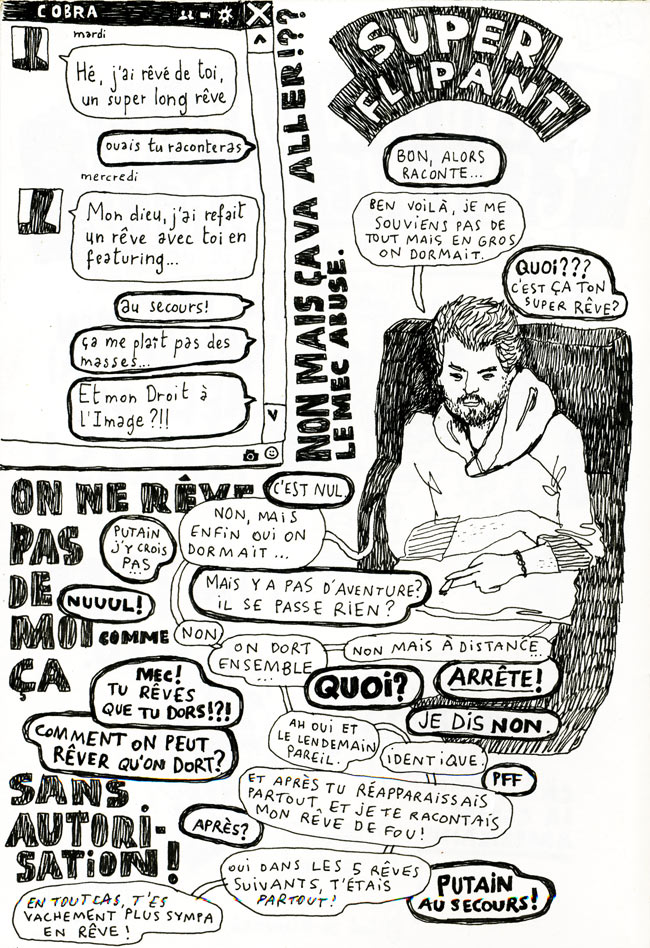 COBRA
mardi
Hé, j'ai rêvé de toi,
un super long rêve
ouais tu raconteras
mercredi
Mon dieu, j'ai refait
un rêve avec toi en
featuring...
au secours!
ça me plaît pas des
masses...
Et mon Droit à
l'Image?!!
NON MAIS ÇA VA ALLER!??
LE MEC ABUSE.
SUPER
FLIPANT
BON, ALORS
RACONTE...
BEN VOILÀ, JE ME
SOUVIENS PAS DE
TOUT MAIS EN GROS
ON DORMAIT.
QUOI???
C'EST ÇA TON
SUPER RÊVE?
ON NE RÊVE
PAS
DE
MOI
COMME
ÇA
SANS
AUTORI-
SATION!
C'EST NUL.
NON, MAIS
ENFIN OUI ON
DORMAIT...
PUTAIN
J'Y CROIS
PAS
...
MAIS Y A PAS D'AVENTURE?
IL SE PASSE RIEN?
NUUUL!
NON
ON DORT
ENSEMBLE
...
NON MAIS À DISTANCE...
MEC!
TU RÊVES
QUE TU DORS!?!
QUOI?
ARRÊTE!
JE DIS NON.
COMMENT ON PEUT
RÊVER QU'ON DORT?
AH OUI ET
LE LENDEMAIN
PAREIL.
IDENTIQUE.
PFF
ET APRÈS TU RÉAPPARAISSAIS
PARTOUT, ET JE TE RACONTAIS
MON RÊVE DE FOU!
APRÈS?
OUI DANS LES 5 RÊVES
SUIVANTS, T'ÉTAIS
PARTOUT!
PUTAIN
AU SECOURS!
EN TOUT CAS, T'ES
VACHEMENT PLUS SYMPA
EN RÊVE!